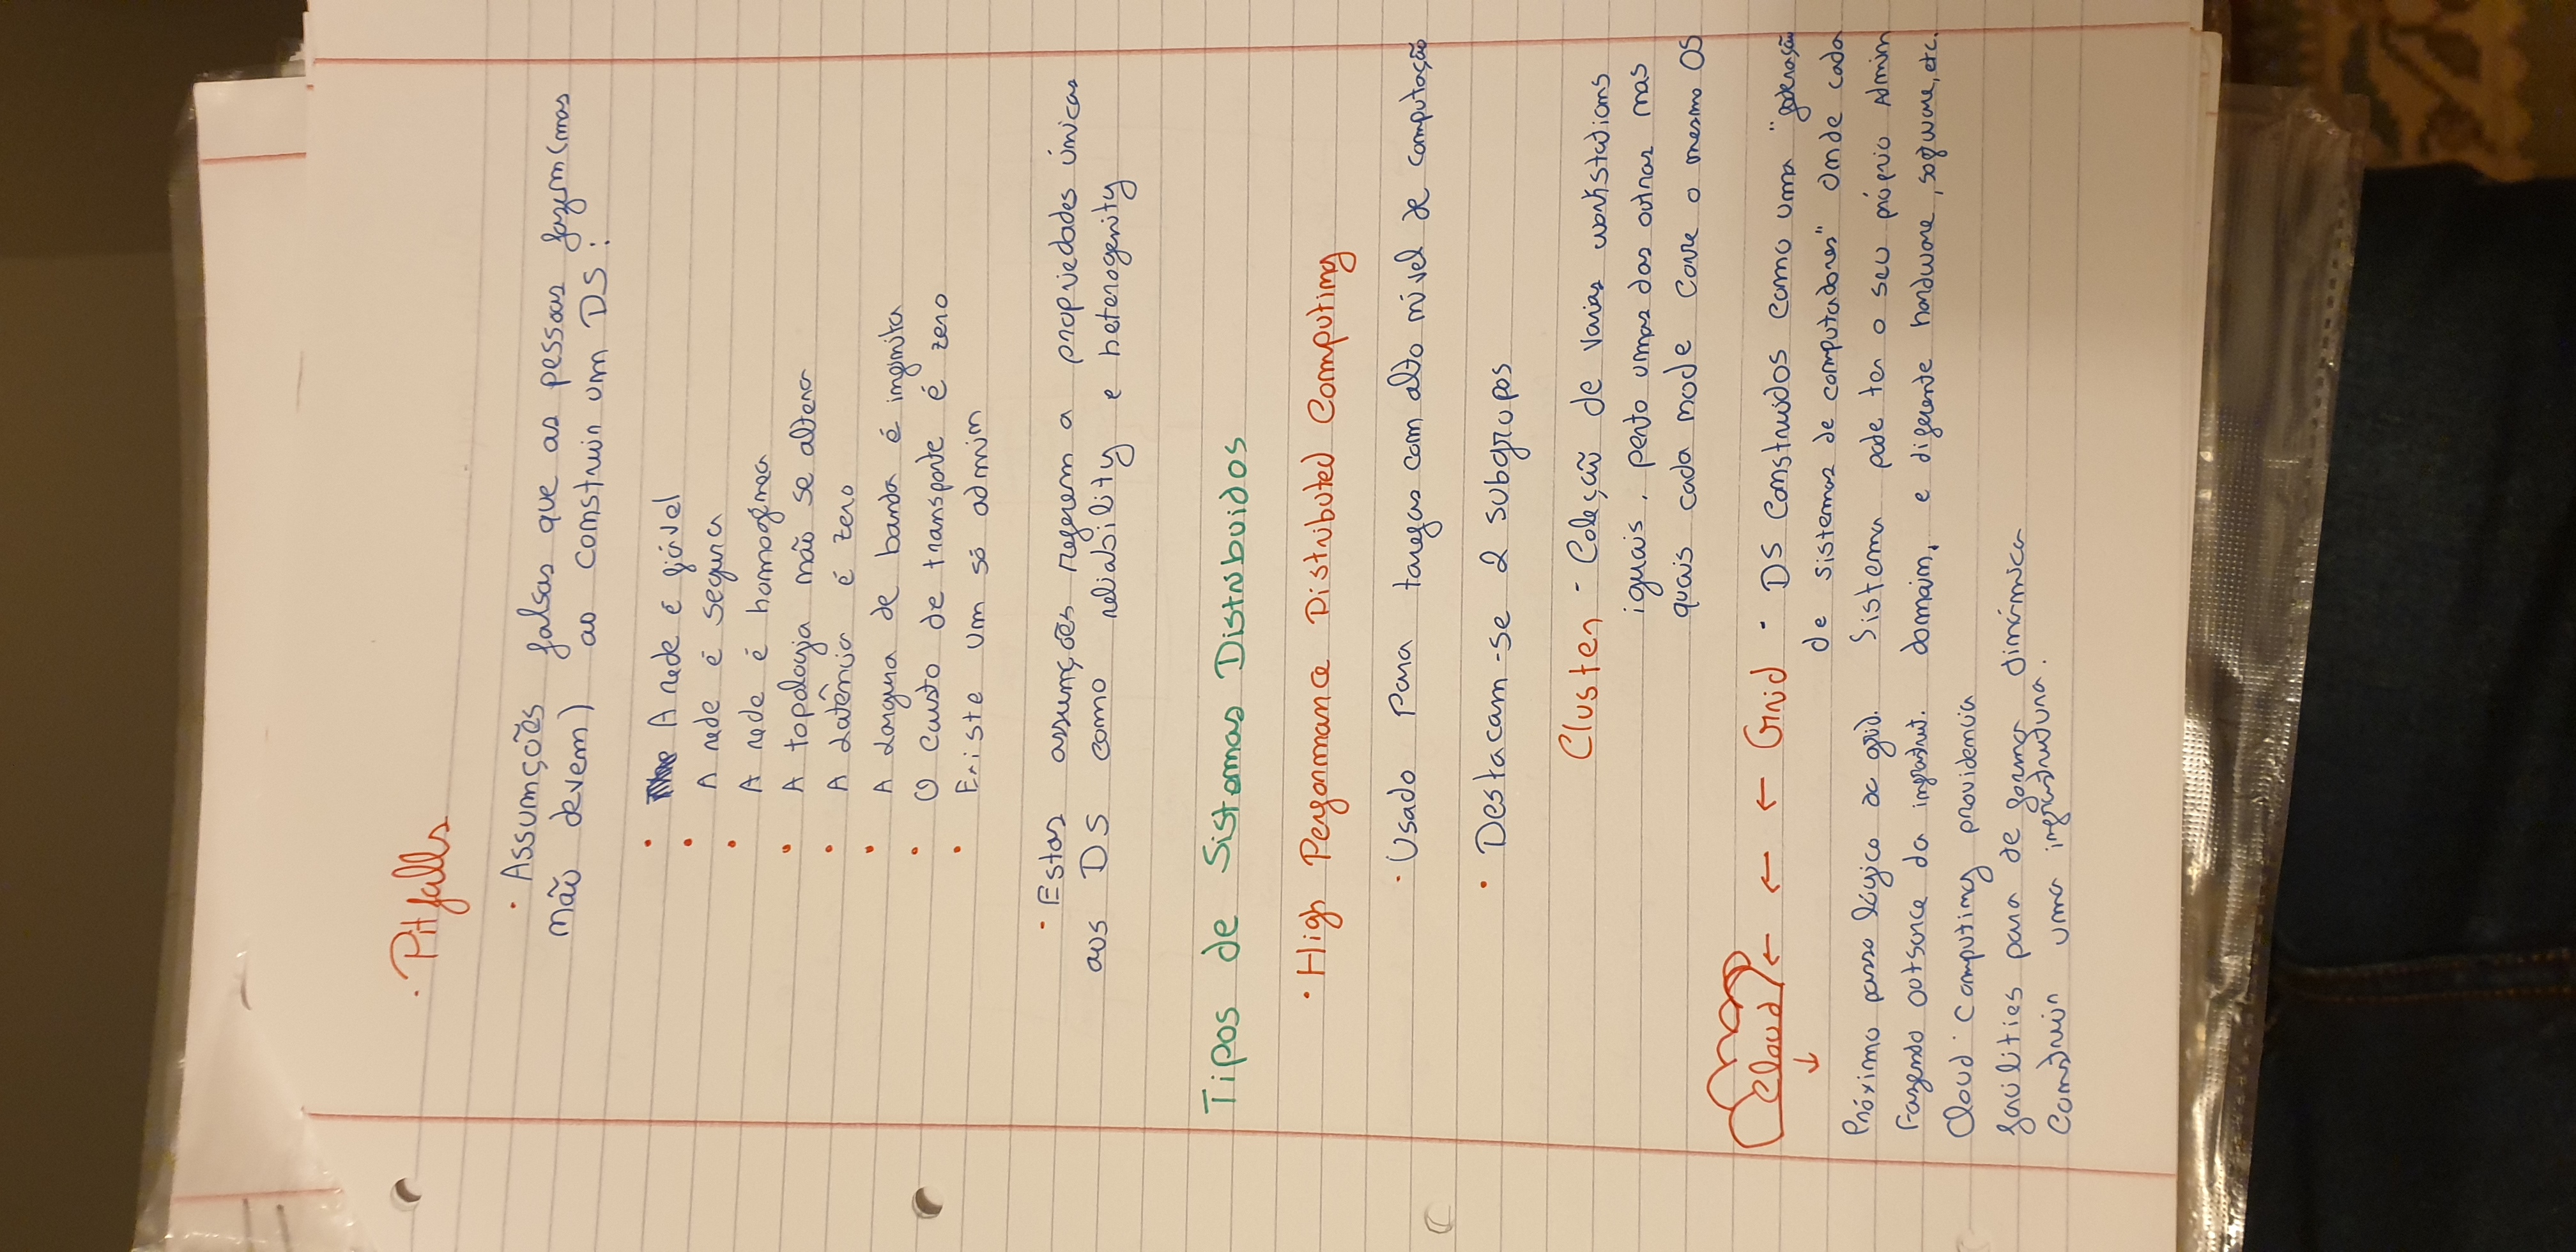 · Pitfalls
· Assumções falsas que as pessoas fazem (mas
não devem) ao construir um DS:
· A rede é fiável
· A rede é segura
· A rede é homogénea
· A topologia não se altera
· A latência é zero
· A largura de banda é infinita
· O custo de transporte é zero
· Existe um só admin
· Estas assumções referem a propriedades únicas
aos DS como reliability e heterogenity
Tipos de Sistemas Distribuidos
· High Performance Distributed Computing
· Usado para tarefas com alto nível de computação
· Destacam-se 2 subgrupos
Cluster - Coleção de varias workstations
iguais, perto umas das outras nas
quais cada node corre o mesmo OS
Cloud ← ← ← Grid - DS construidos como uma "federação
de sistemas de computadores" onde cada
sistema pode ter o seu próprio Admin
domain, e diferente hardware, software, etc.
↓
Próximo passo lógico ao grid.
Fazendo outsorce da infrastrut.
Cloud Computing providencia
facilities para de forma dinâmica
construir uma infrastrutura.